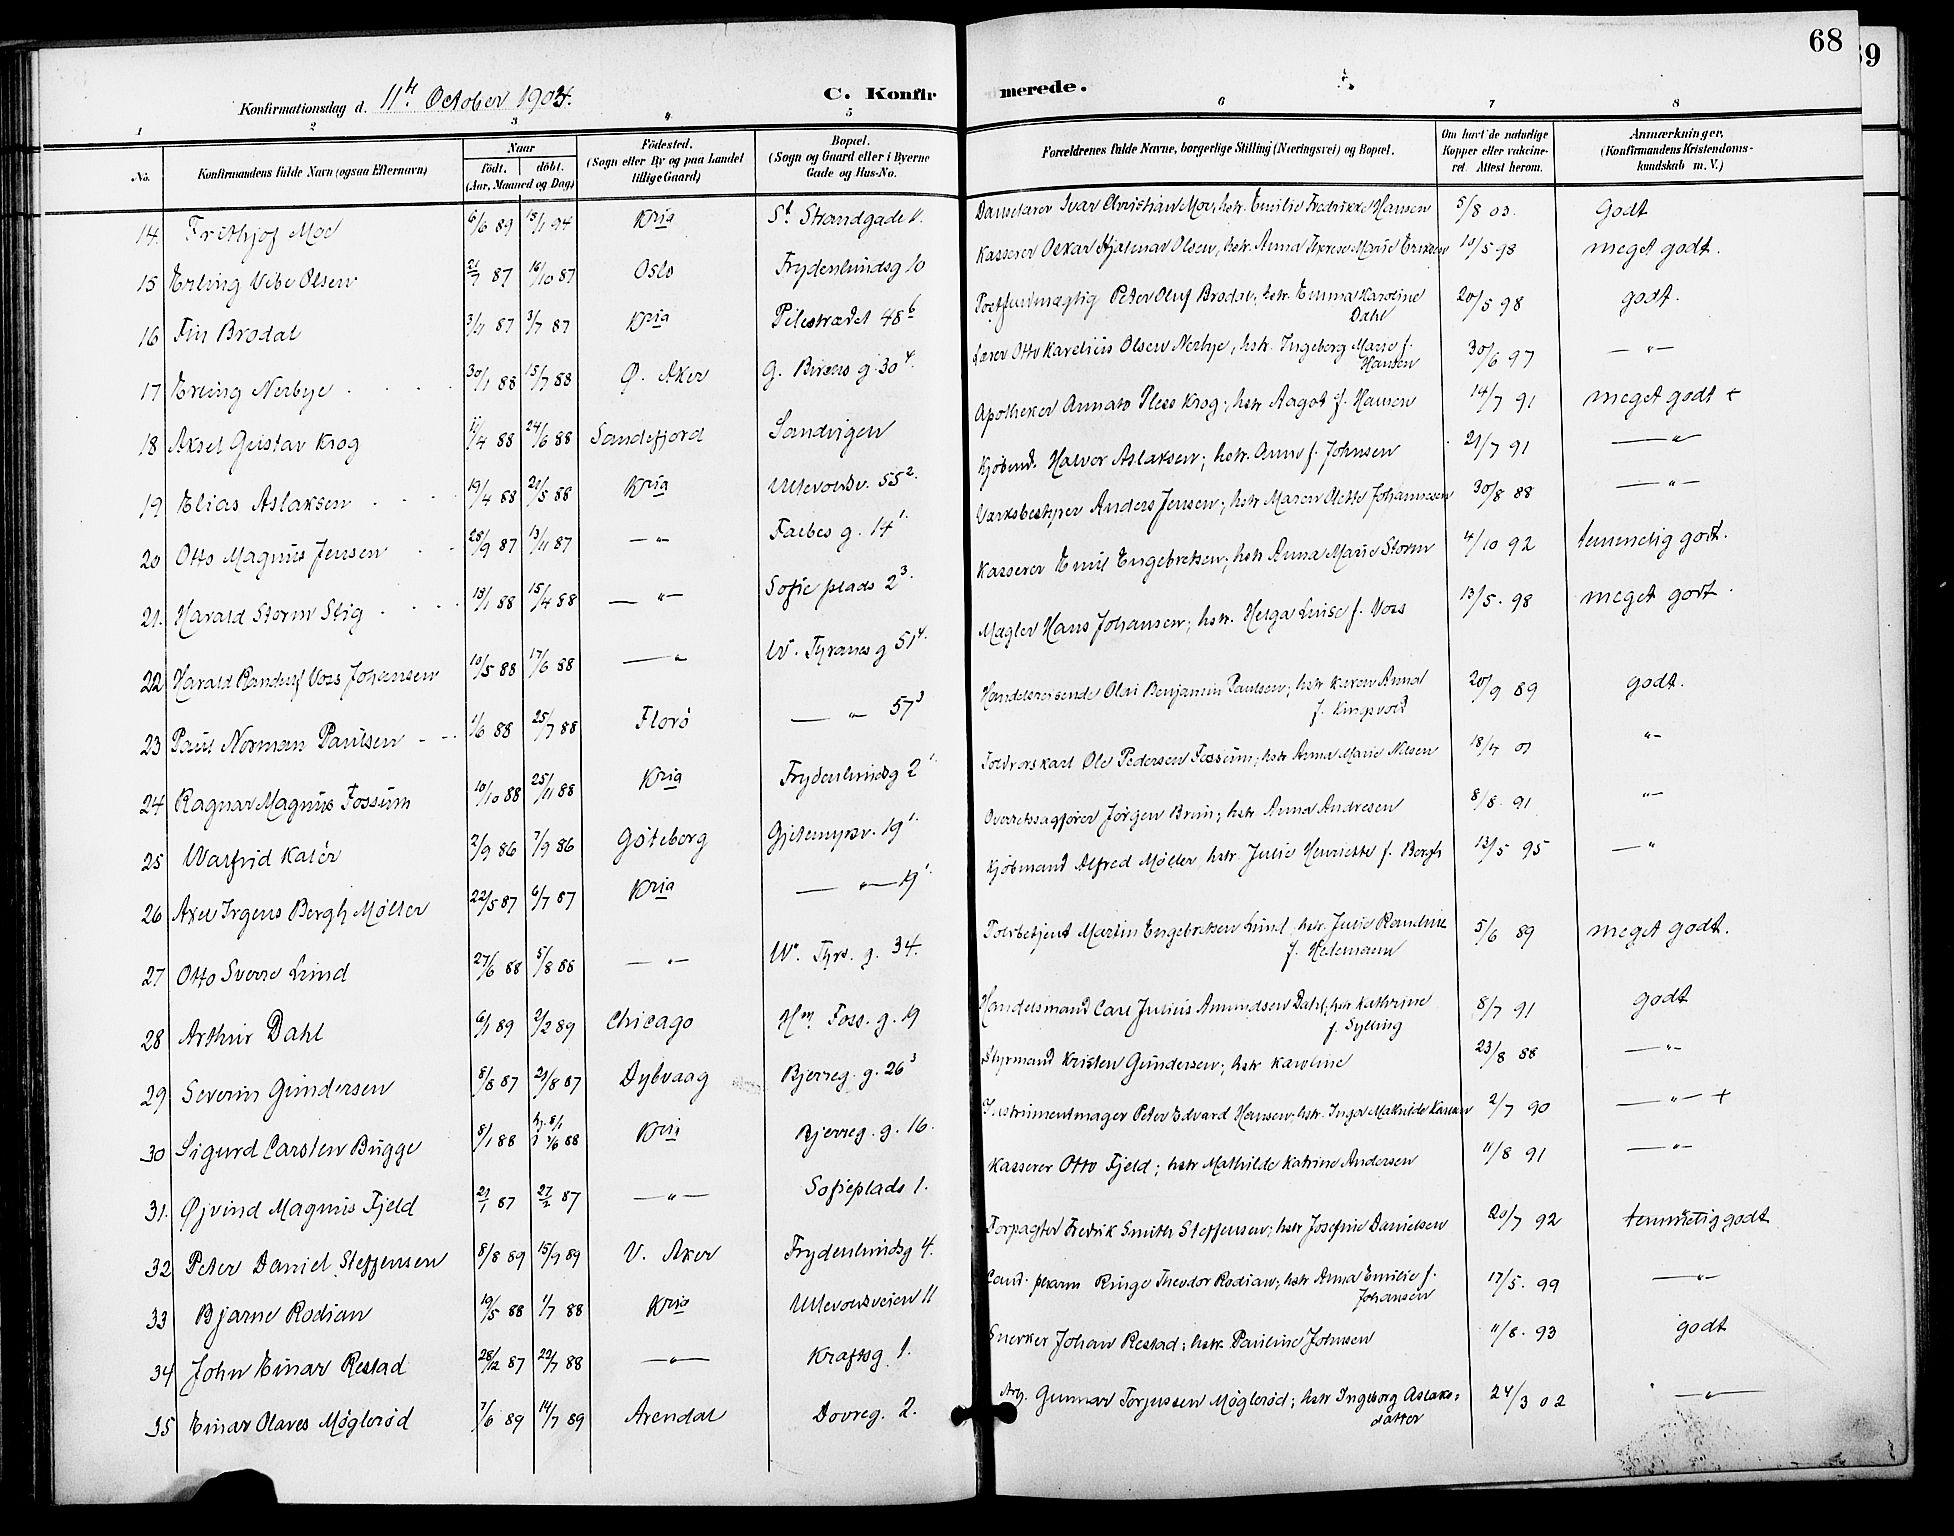 68
69
Konfirmationsdag d. 11te October 1903.
C. Konfirmerede.
1 2 3 4 5 6 7 8
No. Konfirmandens fulde Navn (ogsaa Efternavn) Naar født. døbt. (Aar, Maaned og Dag) Fødested. (Sogn eller By og paa Landet tillige Gaard) Bopæl. (Sogn og Gaard eller i Byerne Gade og Hus-No. Forældrenes fulde Navne, borgerlige Stilling (Næringsvei) og Bopæl. Om havt de naturlige Kopper eller vakcineret. Attest herom. Anmærkninger. (Konfirmandens Kristendomskundskab m. V.)
14 Frithjof Moe 6/6 89 15/1 94 Kria St. Strandgade 1. Danselærer Ivar Christian Moe, hstr. Emilie Fredrikke Hansen 5/8 03. Godt
15 Erling Vibe Olsen 21/7 87 16/10 87 Oslo Frydenlundsg 10 Kasserer Oskar Hjalmar Olsen, hstr. Anna Therese Marie Eriksen 13/5 98 meget godt.
16 Fin Brodal 3/4 87 3/7 87 Kria Pilestrædet 48 b Postfuldmægtig Peter Oluf Brodal, hstr. Emma Karoline Dahl 20/5 98 godt.
17 Erling Nerbye 30/1 88 15/7 88 Ø. Aker G. Birens g. 30 4. Lærer Otto Karelius Olsen Nerbye, hstr. Ingeborg Marie f. Hansen 30/6 97 — " —
18 Axel Gustav Krog 11/4 88 24/6 88 Sandefjord Sandvigen Apotheker Annato Pless Krog; hstr Aagot f. Hansen 14/7 91 meget godt +
19 Elias Aslaksen 19/4 88 21/5 88 Kria Ullevoldsv. 55 2. Kjøbmd. Halvor Aslaksen; hstr. Anne f. Johnsen 21/7 91 — " —
20 Otto Magnus Jensen 25/9 87 13/11 87 — " — Falbes g. 14 1. Værksbestyrer Anders Jensen; hstr Maren Mette Johannesen 30/8 88 — " —
21. Harald Storm Stig 13/1 88 15/4 88 — " — Sofie plads 2 3. Kasserer Emil Engebretsen; hstr Anna Marie Storm 4/10 92 temmelig godt.
22 Harald Randulf Voss Johansen 10/5 88 17/6 88 — " W. Thranes g 51 4. Mægler Hans Johansen; hstr. Helga Luise f. Voss 13/5. 98 meget godt.
23 Paul Norman Paulsen 1/6 88 25/7 88 Florö — " 57 3 Handelsreisende Olai Benjamin Paulsen; hstr Karen Anna f. Ringvold 20/9 89 godt.
24 Ragnar Magnus Fossum 10/10 88 25/11 88 Kria Frydenlundsg 2 1. Toldrorskarl Ole Pedersen Fossum; hstr Anna Marie Nilsen 18/4 01 " —
25 Walfrid Kalér 2/9 86 7/9 86 Göteborg Gjetemyrsv. 19 1. Overretssagfører Jørgen Brun; hstr Anna Andresen 8/8. 91 " —
26 Axel Irgens Bergh Møller 22/5 87 6/7 87 Kria — " — 19 1. Kjøbmand Alfred Møller, hstr. Julie Henriette f. Bergh 13/5 95 — "
27 Otto Sverre Lund 27/6 88 5/8 88 — " — W. Thrs. g. 34. Toldbetjent Martin Engebretsen Lund, hstr Julie Randine f. Hedemann 5/6 89 meget godt.
28 Arthur Dahl 6/1 89 2/2 89 Chicago Hm. Foss. g. 19 Handelsmand Carl Julius Amundsen Dahl; hstr Kathrine f. Sylling 8/7 91 godt
29 Severin Gundersen 8/8 87 21/8 87 Dybvaag Bjerreg. g. 26 3 Styrmand Kristen Gundersen; hstr Karoline 23/8 88 — " —
30 Sigurd Carsten Bugge 8/1 88 3/6 88 Kria Bjerreg. g. 16. Instrumentmager Peter Edvard Hansen; hstr. Inga Mathilde Karlsen 2/7 90 — " — +
31. Øjvind Magnus Fjeld 21/1 87 27/2 87 — " — Sofieplads 1. Kasserer Otto Fjeld; hstr Mathilde Katrine Andersen 11/8 91 — " —
32 Peter Daniel Steffensen 8/8 89 15/9 89 V. Aker Frydenlundsg 4. Forpagter Fredrik Smith Steffensen; hstr Josefine Danielsen 20/7 92 temmelig godt
33 Bjarne Rodian 19/5 88 1/7 88 Kria Ullevoldsveien 11 Cand. pharm Ringe Theodor Rodian; hstr Anna Emilie f. Johansen 17/5. 99 — " —
34 John Einar Restad 28/12 87 22/7 88 — " — Kraftsg 1. Snekker Johan Restad; hstr Pauline Johnsen 11/8. 93 godt
35 Einar Olaves Møglerød 7/6 89 14/7 89 Arendal Dovreg. 2. Arb. Gunnar Torjussen Møglerød; hstr Ingeborg Aslaksdatter 24/3 02 — " —